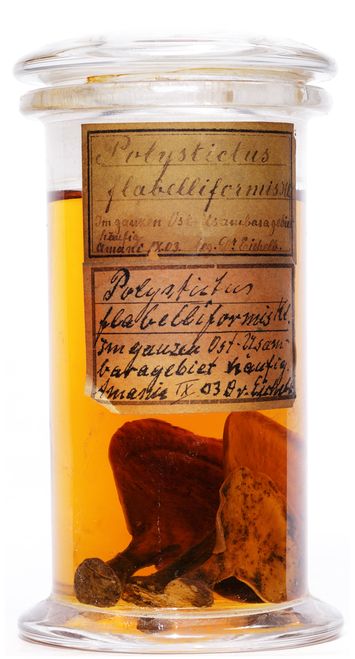 Polystictus
flabelliformis Kl.
Im ganzen Ost-Usambaragebiet
häufig
Amani IX.03. leg. Dr. Eichelb.
Polystictus
flabelliformis Kl.
Im ganzen Ost-Usam-
baragebiet häufig
Amani IX 03 Dr. Eichelb.